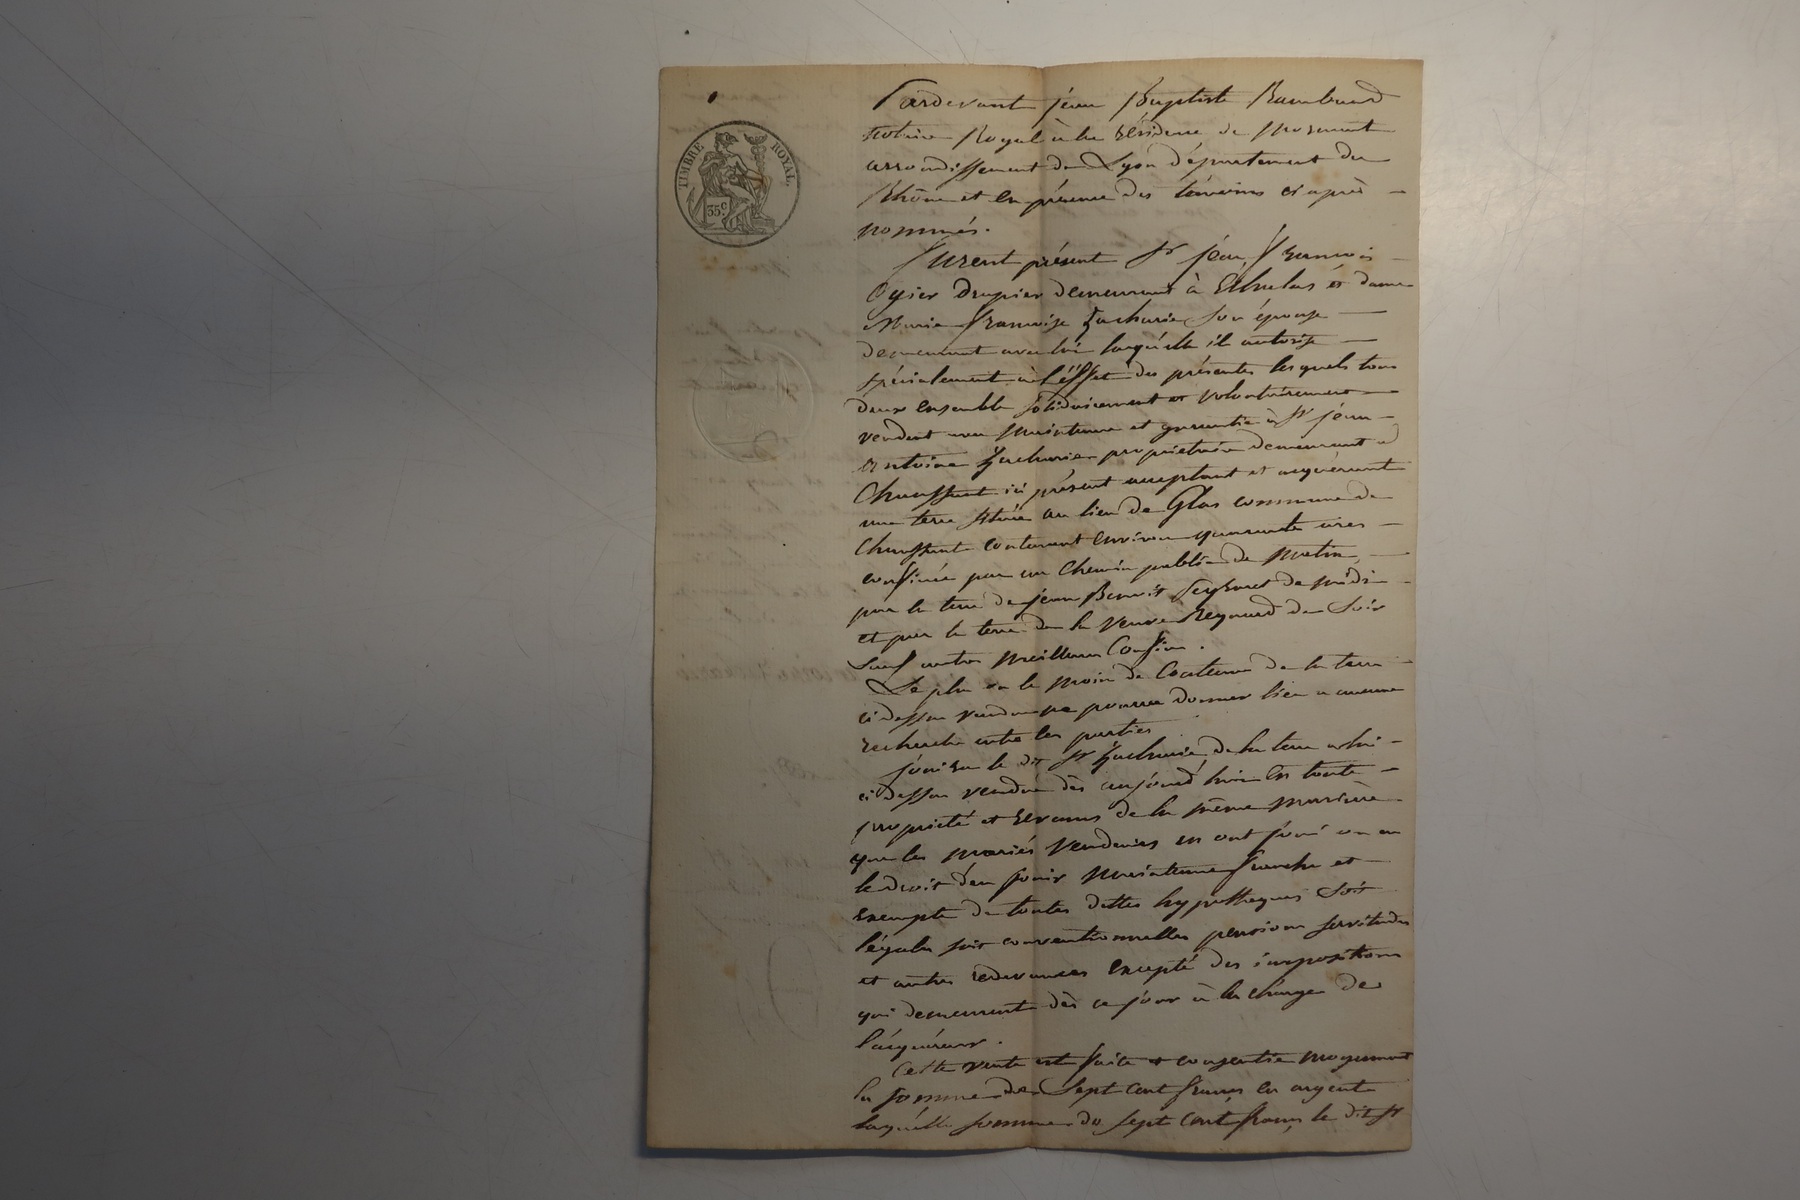 TIMBRE ROYAL
35 c.
Pardevant jean Baptiste Rambaud
notaire Royal à la résidence de Mornant
arrondissement de Lyon département du
Rhône et en présence des témoins ci après
nommés.
furent présent Sr jean françois
Ogier drapier demeurant à et dame
Marie françoise Zacharie son épouse
demeurant avec lui laquélle il autorise
spécialement à l'éffet des présentes lesquels tous
deux ensemble solidairement et volontairement
vendent avec maintenue et garantie à Sr jean
antoine Zacharie propriétaire demeurant à
Chaussant ici présent acceptant et acquérant
une terre située au lieu de Glas commune de
Chaussant contenant environ quarante ares
confinée par un chemin public de matin
par la terre de jean Benoit de midi
et par la terre de la veuve Reynard de Soir
Sauf autres meilleurs Confins.
Le plus ou le moin de Contenue de la terre
ci dessus vendue ne pourra donner lieu a aucune
recherche entre les parties
jouira le dit Sr Zacharie de la terre a lui
ci dessus vendue dès aujourd'huie en toute
propriété et revenus de la même manière
que les mariés vendeurs en ont joui ou eu
le droit d'en jouir maintenue franche et
exempte de toutes dettes hypotheques soit
légales soit conventionnelles pensions servitudes
et autres redevances excepté des impositions
qui demeurent dès ce jour à la charge de
l'acquéreur.
Cette vente est faite et consentie moyennant
la somme de Sept cent francs en argent
laquélle somme de sept cent francs le dit Sr